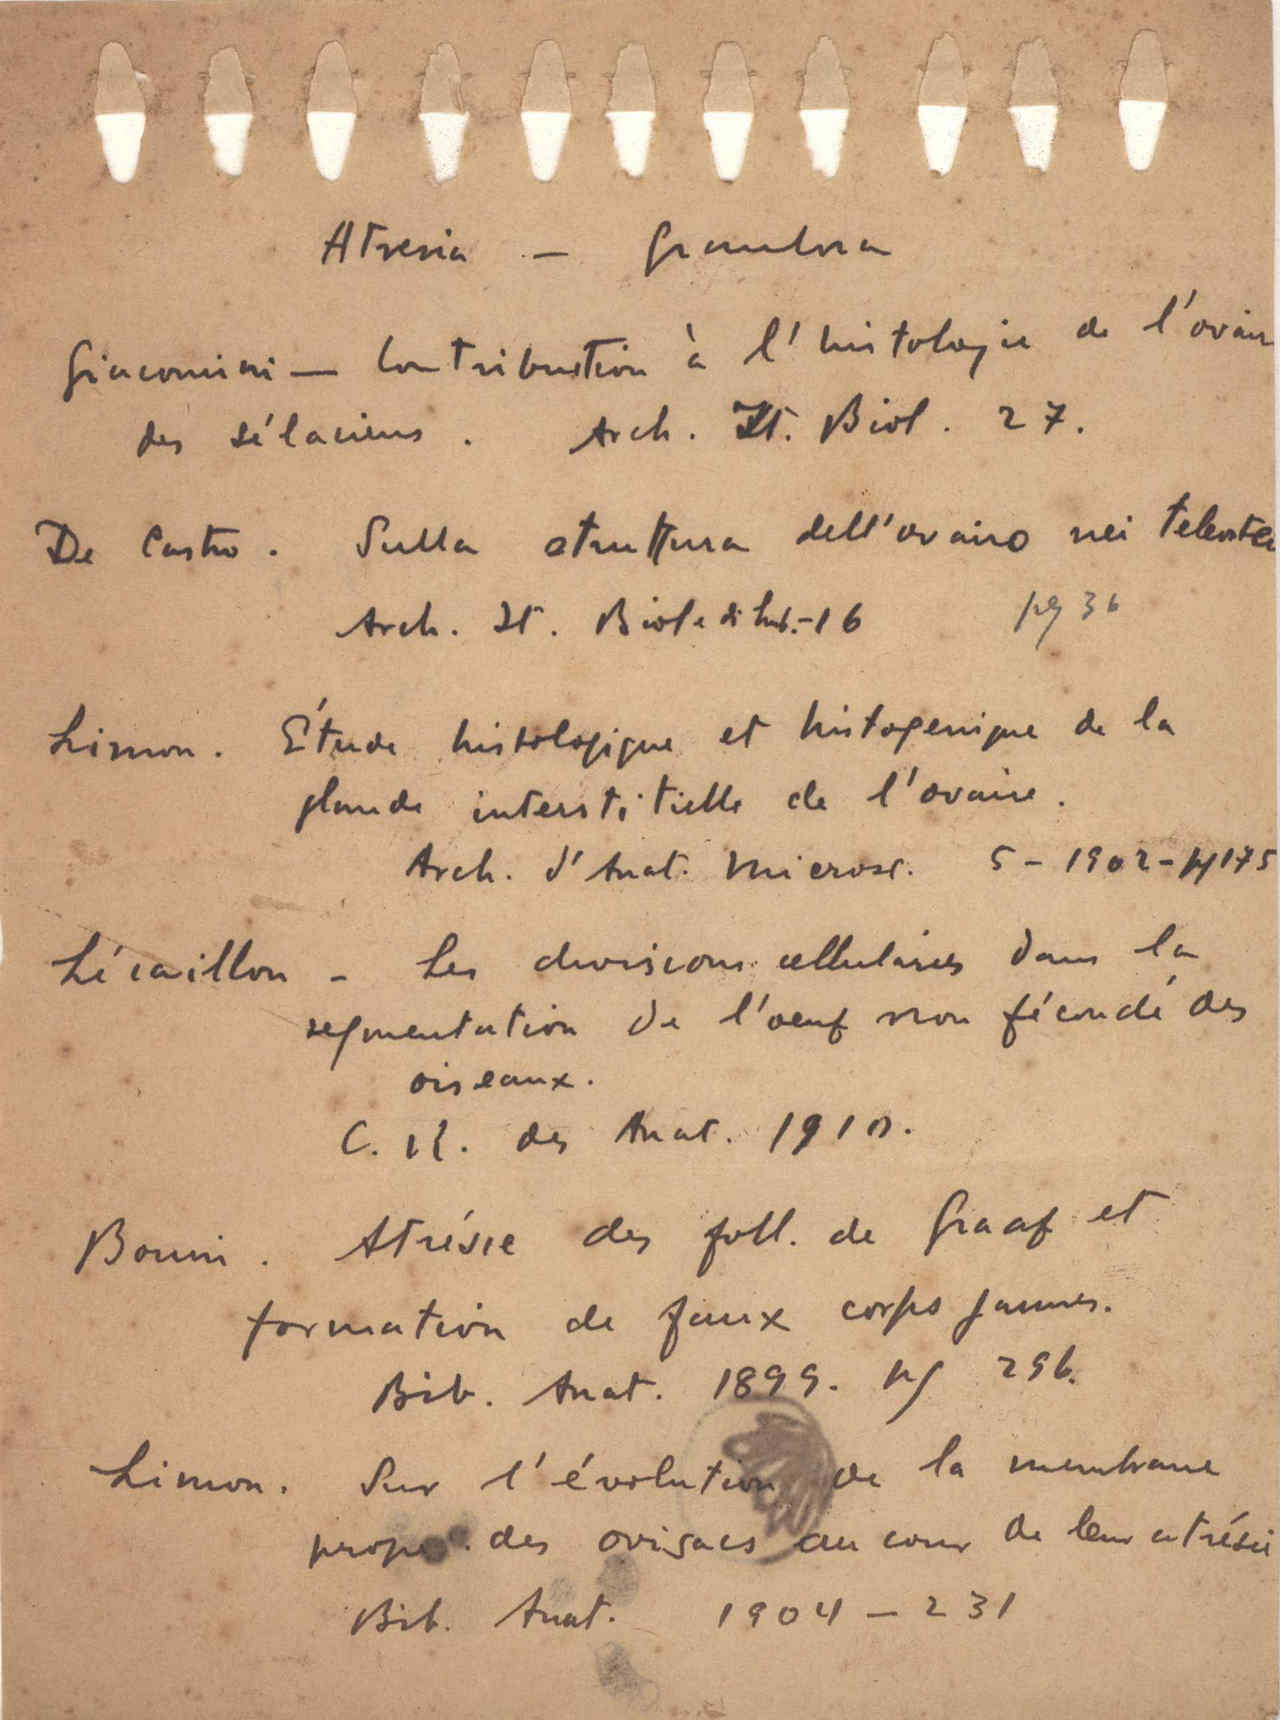 Atresia - Granulosa
Giacomini - Contribution à l'histologie de l'ovaire
des sélaciens. Arch. It. Biol. 27.
De Castro. Sulla struttura dell'ovario nei teleostei
Arch. It. Biol. di 16 pg 36
Limon. Étude histologique et histogenique de la
glande interstitielle de l'ovaire.
Arch. d'Anat. Microsc. 5 - 1902 - pg 175
Lécaillon - Les divisions cellulaires dans la
segmentation de l'oeuf non fécondé des
oiseaux.
C. R. des Anat. 1910.
Bouin. Atrésie des foll. de Graaf et
formation de faux corps jaunes.
Bib. Anat. 1899. pg 296.
Limon. Sur l'évolution de la membrane
propre des ovisacs au cour de leur atrésie
Bib. Anat. 1904 - 231